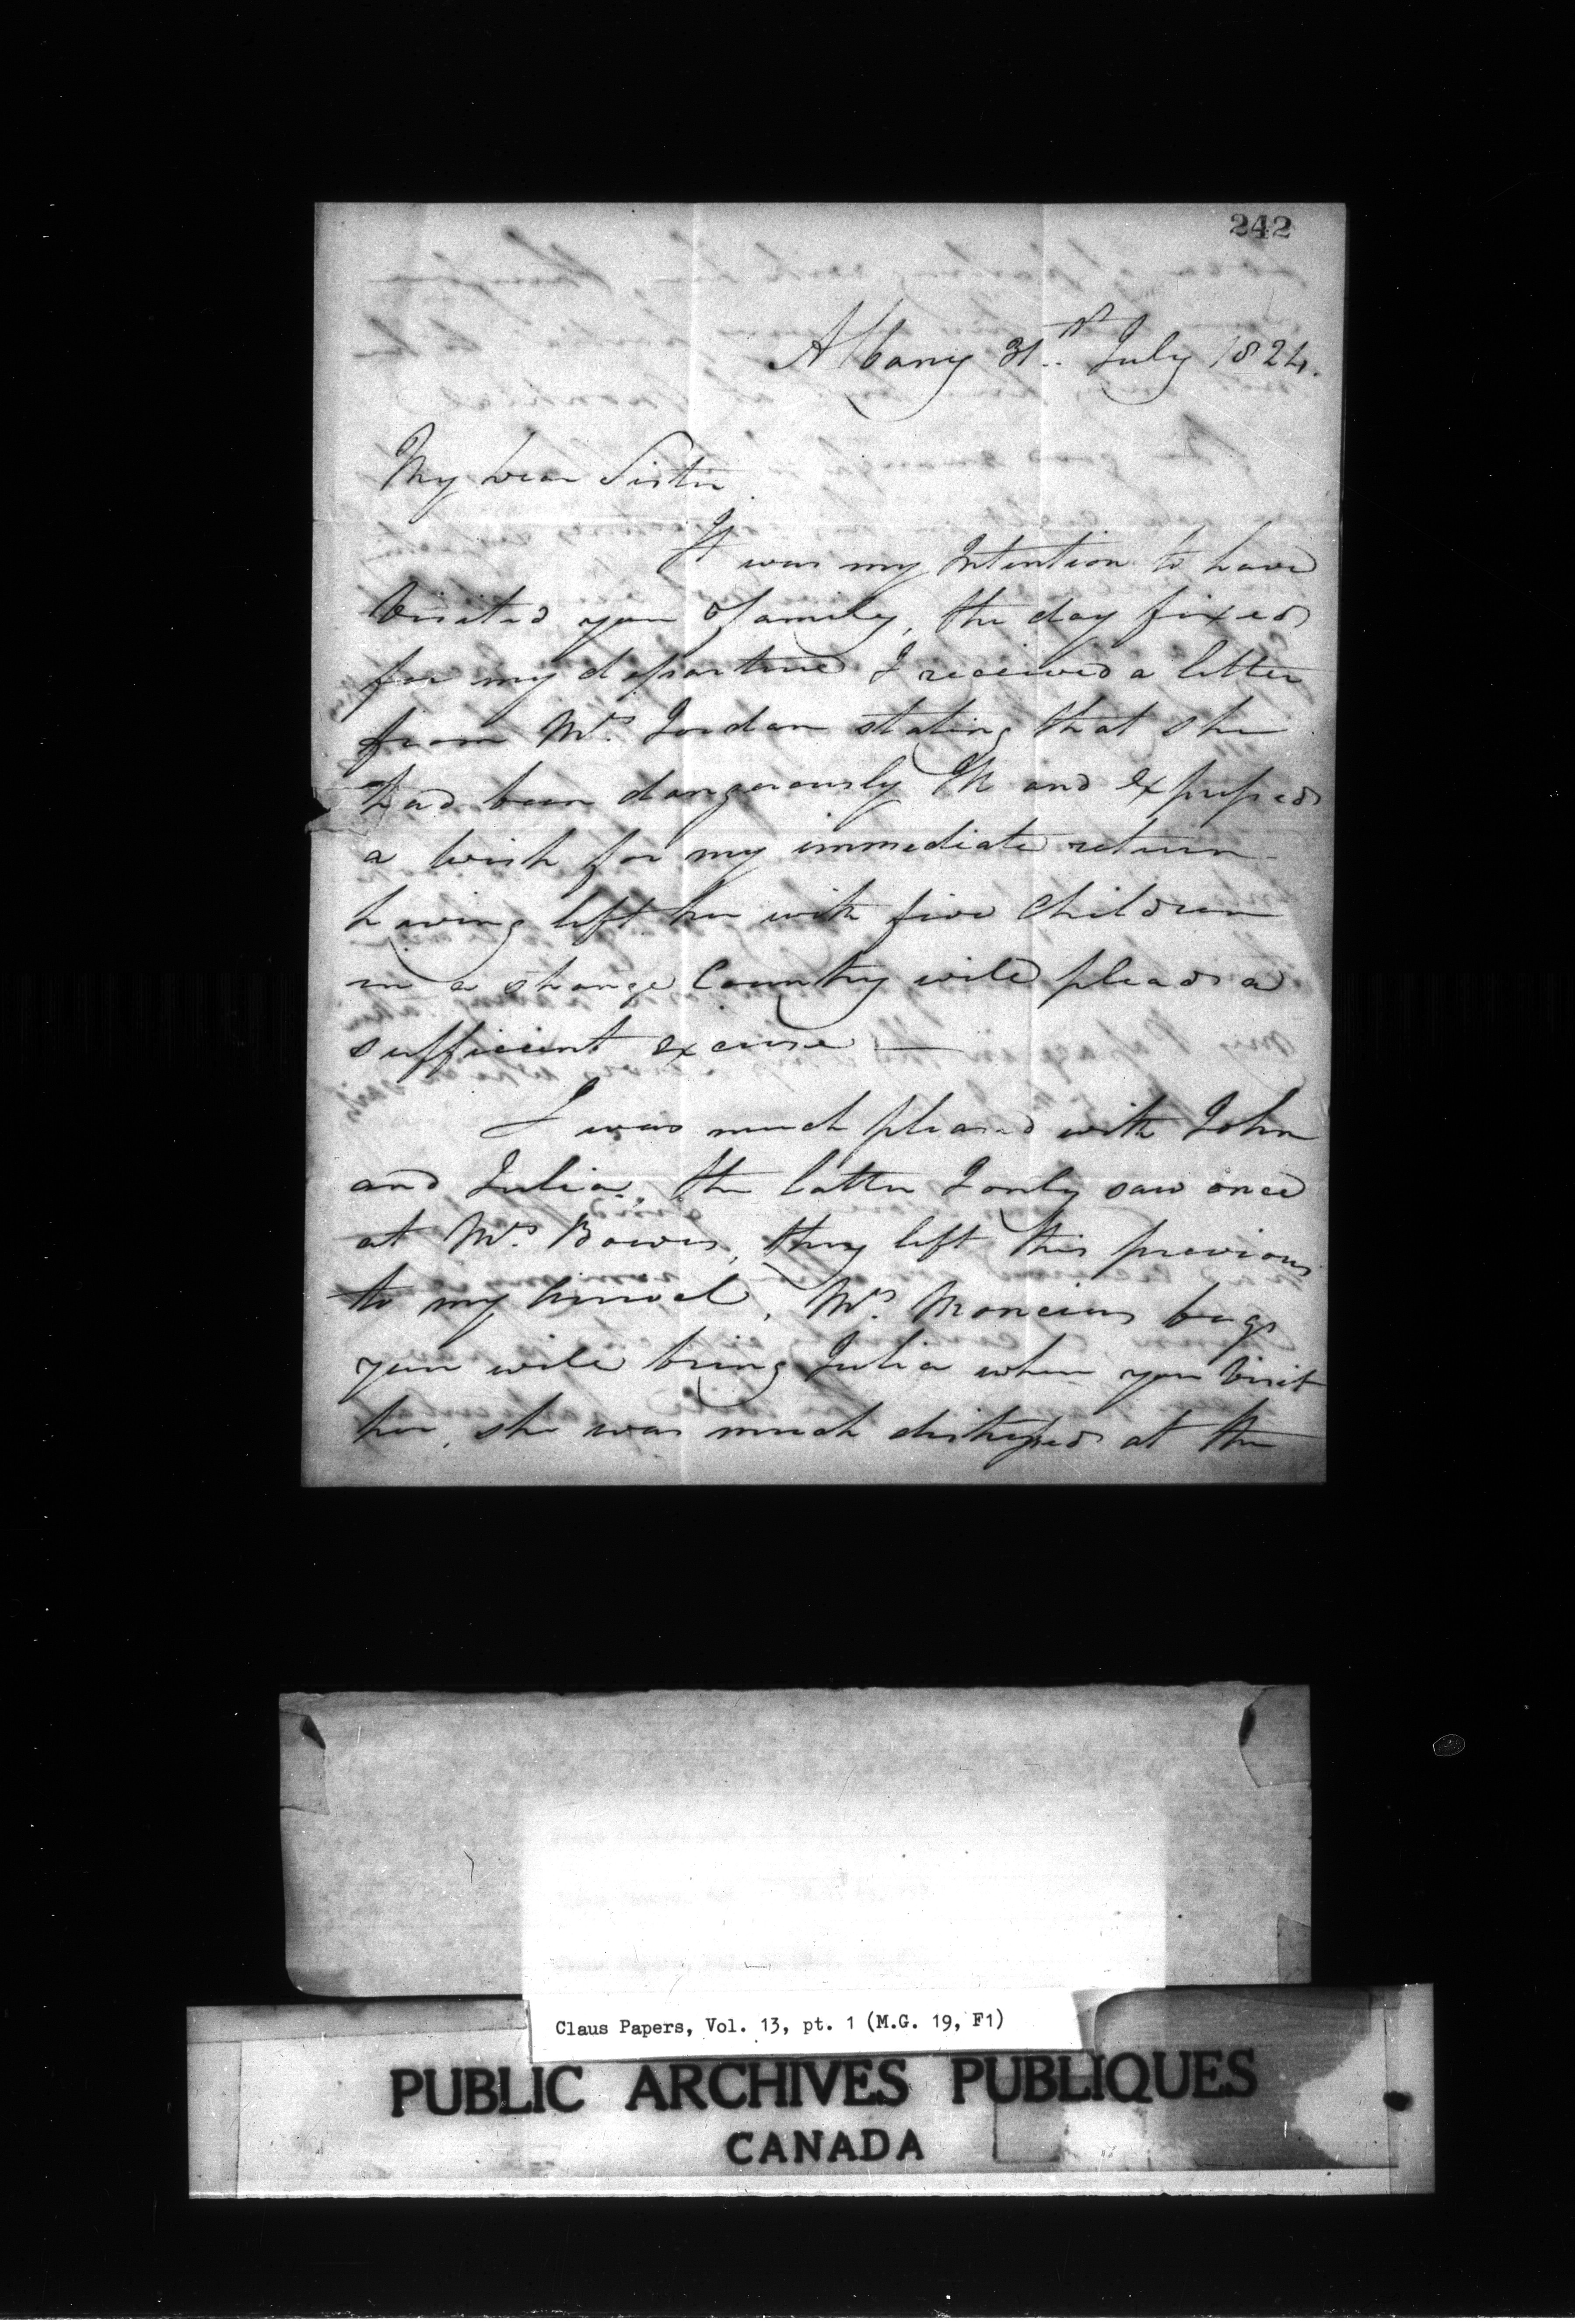 242
Albany 31st July 1824.
My dear Sister
It was my Intention to have
Visited your family, the day fixed
for my departure I received a letter
from Mrs Jordan stating that she
had been dangerously Ill and expressed
a wish for my immediate return
having left her with five Children
in a strange Country will plead a
sufficient excuse —
I was much pleased with John
and Julia, the latter I only saw once
at Mrs Bowers, they left this previous
to my Arrival, Mrs begs
you will bring Julia when you Visit
her, she was much distressed at the
Claus Papers, Vol. 13, pt. 1 (M.G. 19, F1)
PUBLIC ARCHIVES PUBLIQUES
CANADA